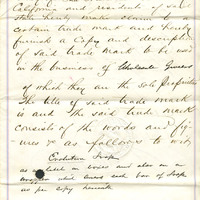 California and residents of said
state hereby make claim to a
certain trade mark and hereby
furnish a Copy and description
of said trade mark to be used
in the business of Wholesale Grocers
of which they are the Sole Proprietors
The title of said trade mark
is and the said trade mark
consists of the words and fig-
ures & as follows to wit,
Evolution Soap
as a label on boxes and also on a
wrapper which covers each bar of Soap
as per copy herewith